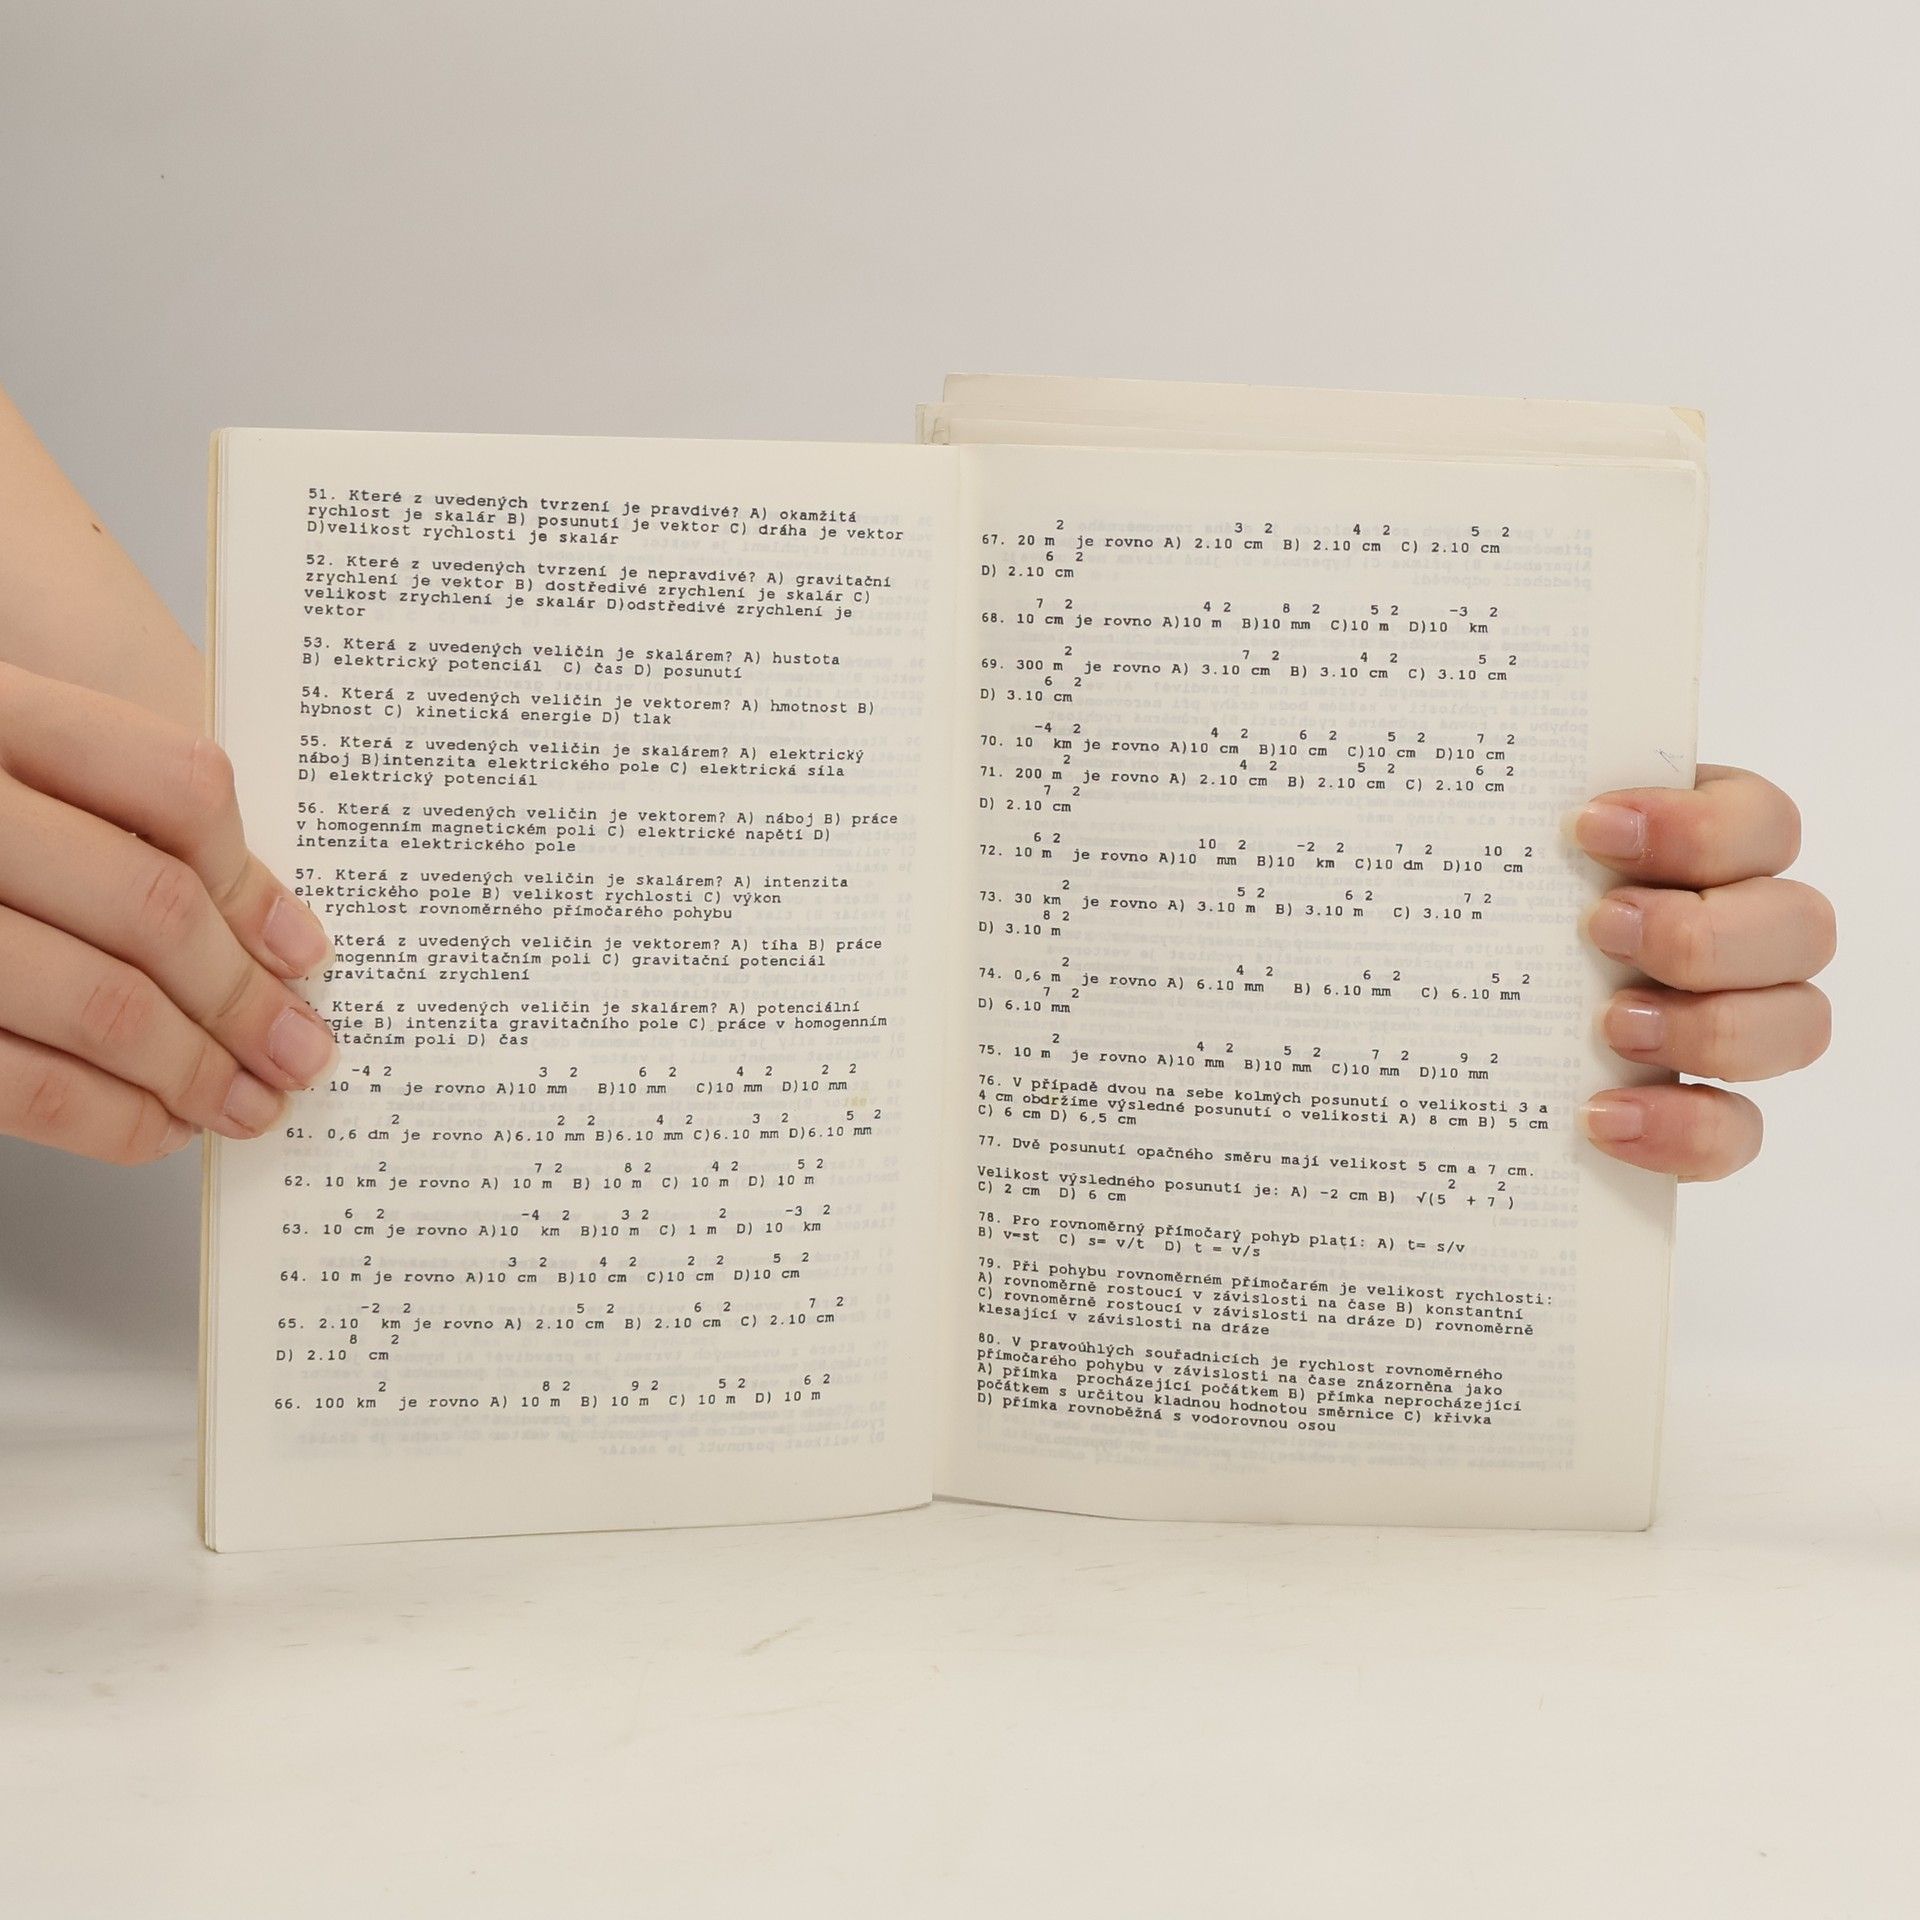 51. Které z uvedených tvrzení je pravdivé? A) okamžitá
rychlost je skalár B) posunutí je vektor C) dráha je vektor
D)velikost rychlosti je skalár
52. Které z uvedených tvrzení je nepravdivé? A) gravitační
zrychlení je vektor B) dostředivé zrychlení je skalár C)
velikost zrychlení je skalár D)odstředivé zrychlení je
vektor
53. Která z uvedených veličin je skalárem? A) hustota
B) elektrický potenciál C) čas D) posunutí
54. Která z uvedených veličin je vektorem? A) hmotnost B)
hybnost C) kinetická energie D) tlak
55. Která z uvedených veličin je skalárem? A) elektrický
náboj B)intenzita elektrického pole C) elektrická síla
D) elektrický potenciál
56. Která z uvedených veličin je vektorem? A) náboj B) práce
v homogenním magnetickém poli C) elektrické napětí D)
intenzita elektrického pole
57. Která z uvedených veličin je skalárem? A) intenzita
elektrického pole B) velikost rychlosti C) výkon
rychlost rovnoměrného přímočarého pohybu
Která z uvedených veličin je vektorem? A) tíha B) práce
gravitačním poli C) gravitační potenciál
gravitační zrychlení
Která z uvedených veličin je skalárem? A) potenciální
B) intenzita gravitačního pole C) práce v homogenním
poli D) čas
10⁻⁴ m² je rovno A)10³ mm² B)10⁶ mm² C)10⁴ mm² D)10² mm²
61. 0,6 dm² je rovno A)6.10² mm² B)6.10⁴ mm² C)6.10³ mm² D)6.10⁵ mm²
62. 10 km² je rovno A) 10⁷ m² B) 10⁸ m² C) 10⁴ m² D) 10⁵ m²
63. 10⁶ cm² je rovno A)10⁻⁴ km² B)10³ m² C) 1 m² D) 10⁻³ km²
64. 10 m² je rovno A)10³ cm² B)10⁴ cm² C)10² cm² D)10⁵ cm²
65. 2.10⁻² km² je rovno A) 2.10⁵ cm² B) 2.10⁶ cm² C) 2.10⁷ cm²
D) 2.10⁸ cm²
66. 100 km² je rovno A) 10⁸ m² B) 10⁹ m² C) 10⁵ m² D) 10⁶ m²
67. 20 m² je rovno A) 2.10³ cm² B) 2.10⁴ cm² C) 2.10⁵ cm²
D) 2.10⁶ cm²
68. 10⁷ cm² je rovno A)10⁴ m² B)10⁸ mm² C)10⁵ m² D)10⁻³ km²
69. 300 m² je rovno A) 3.10⁷ cm² B) 3.10⁴ cm² C) 3.10⁵ cm²
D) 3.10⁶ cm²
70. 10⁻⁴ km² je rovno A)10⁴ cm² B)10⁶ cm² C)10⁵ cm² D)10⁷ cm²
71. 200 m² je rovno A) 2.10⁴ cm² B) 2.10⁵ cm² C) 2.10⁶ cm²
D) 2.10⁷ cm²
72. 10⁶ m² je rovno A)10¹⁰ mm² B)10⁻² km² C)10⁷ dm² D)10¹⁰ cm²
73. 30 km² je rovno A) 3.10⁵ m² B) 3.10⁶ m² C) 3.10⁷ m²
D) 3.10⁸ m²
74. 0,6 m² je rovno A) 6.10⁴ mm² B) 6.10⁶ mm² C) 6.10⁵ mm²
D) 6.10⁷ mm²
75. 10 m² je rovno A)10⁴ mm² B)10⁵ mm² C)10⁷ mm² D)10⁹ mm²
76. V případě dvou na sebe kolmých posunutí o velikosti 3 a
4 cm obdržíme výsledné posunutí o velikosti A) 8 cm B) 5 cm
C) 6 cm D) 6,5 cm
77. Dvě posunutí opačného směru mají velikost 5 cm a 7 cm.
Velikost výsledného posunutí je: A) -2 cm B) √(5² + 7²)
C) 2 cm D) 6 cm
78. Pro rovnoměrný přímočarý pohyb platí: A) t= s/v
B) v=st C) s= v/t D) t = v/s
79. Při pohybu rovnoměrném přímočarém je velikost rychlosti:
A) rovnoměrně rostoucí v závislosti na čase B) konstantní
C) rovnoměrně rostoucí v závislosti na dráze D) rovnoměrně
klesající v závislosti na dráze
80. V pravoúhlých souřadnicích je rychlost rovnoměrného
přímočarého pohybu v závislosti na čase znázorněna jako
A) přímka procházející počátkem B) přímka neprocházející
počátkem s určitou kladnou hodnotou směrnice C) křivka
D) přímka rovnoběžná s vodorovnou osou